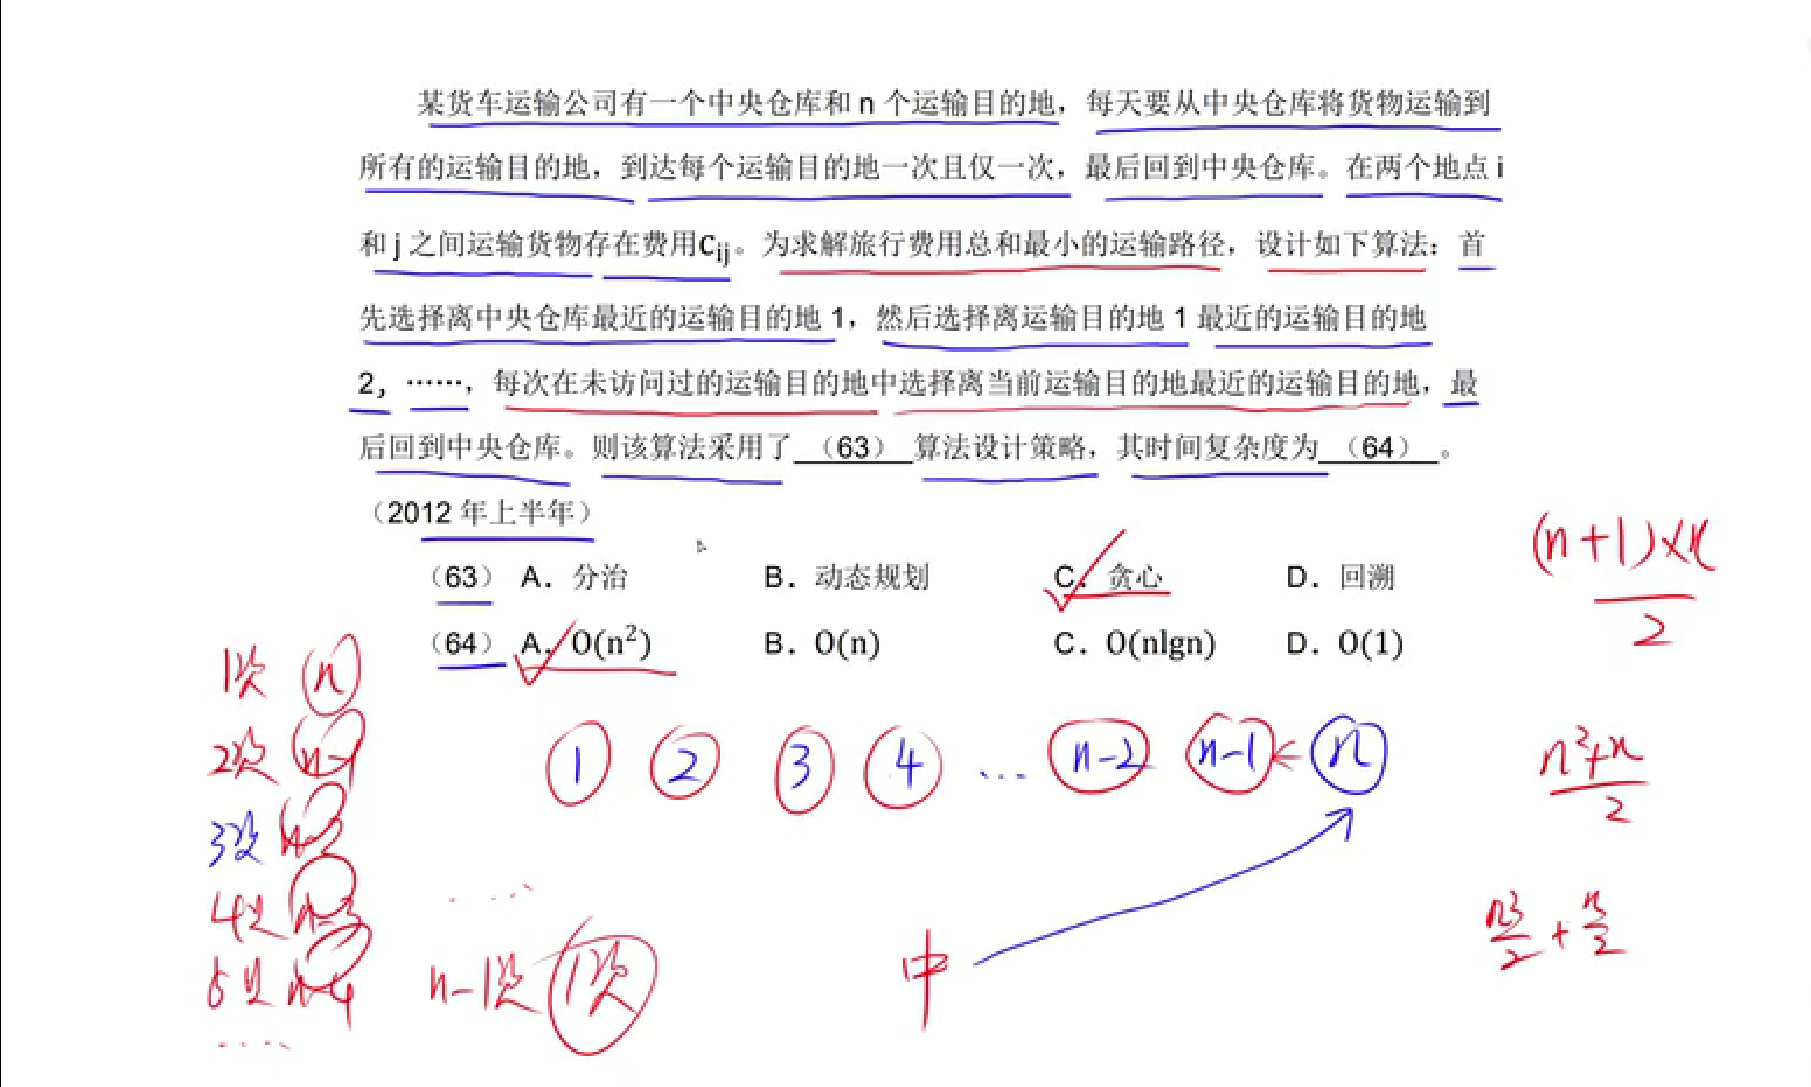 某货车运输公司有一个中央仓库和 n 个运输目的地，每天要从中央仓库将货物运输到
所有的运输目的地，到达每个运输目的地一次且仅一次，最后回到中央仓库。在两个地点 i
和 j 之间运输货物存在费用C_ij。为求解旅行费用总和最小的运输路径，设计如下算法：首
先选择离中央仓库最近的运输目的地 1，然后选择离运输目的地 1 最近的运输目的地
2，……，每次在未访问过的运输目的地中选择离当前运输目的地最近的运输目的地，最
后回到中央仓库。则该算法采用了（63）算法设计策略，其时间复杂度为（64）。
（2012 年上半年）
（63） A．分治 B．动态规划 C．贪心 D．回溯
（64） A．O(n²) B．O(n) C．O(nlgn) D．O(1)
(n+1)×n
2
1次 n
2次 n-1
3次
4次 n-3
5次 n-4
....
......
n-1次 1次
1 2 3 4 ... n-2 n-1 n
中
n²+n
2
n²/2 + n/2